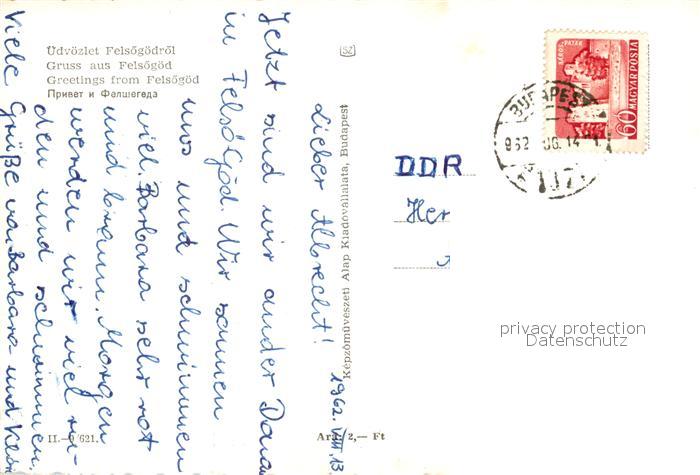 Üdvözlet Felsőgödről
Gruss aus Felsőgöd
Greetings from Felsőgöd
Привет и Фелшегеда
1962. VIII. 13.
Lieber Albrecht!
Jetzt sind wir an der Donau
in Felsőgöd. Wir sonnen
uns und schwimmen
viel. Barbara sehr rot
und braun. Morgen
werden wir viel ru-
den und schwimmen.
Viele Grüße von Barbara und
II.–6/621.
Ára: 2,— Ft
Képzőművészeti Alap Kiadóvállalata, Budapest
SZ
SÁROSPATAK
60 MAGYAR POSTA
BUDAPEST
962 14
DDR
Her
privacy protection
Datenschutz